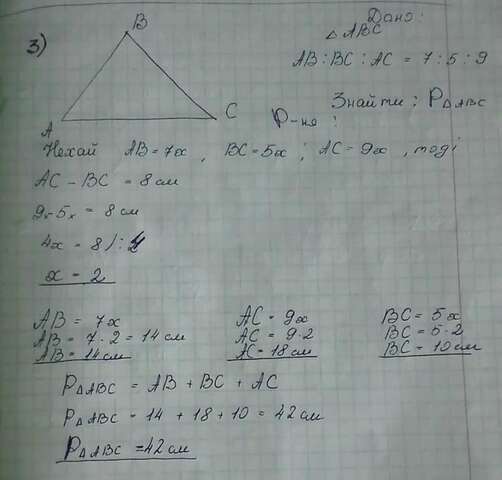 3)
B
A
C
Дано:
△ ABC
AB : BC : AC = 7 : 5 : 9
Знайти : P△ABC
Р-ня :
Нехай AB = 7x , BC = 5x ; AC = 9x , тоді
AC - BC = 8 см
9x-5x = 8 см
4x = 8 /: 4
x = 2
AB = 7x
AB = 7 · 2 = 14 см
AB = 14 см
AC = 9x
AC = 9·2
AC = 18 см
BC = 5x
BC = 5·2
BC = 10 см
P△ABC = AB + BC + AC
P△ABC = 14 + 18 + 10 = 42 см
P△ABC = 42 см